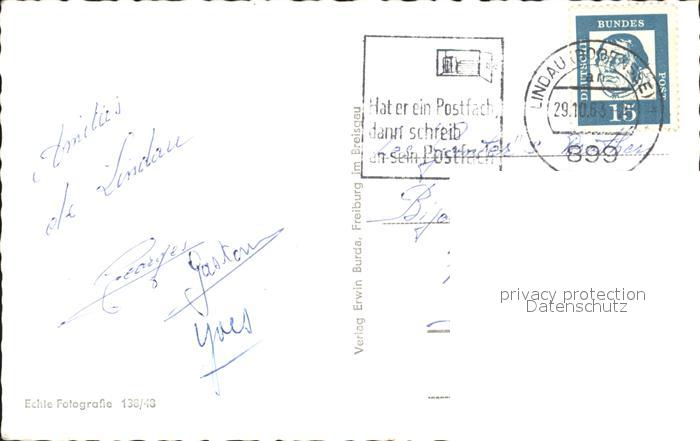 Amitiés
de Lindau
Georges
Gaston
Yves
Echte Fotografie 138/48
Verlag Erwin Burda, Freiburg im Breisgau
Hat er ein Postfach,
dann schreib
an sein Postfach
LINDAU (BODENSEE)
29.10.63
899
DEUTSCHE
BUNDES
POST
15
privacy protection
Datenschutz